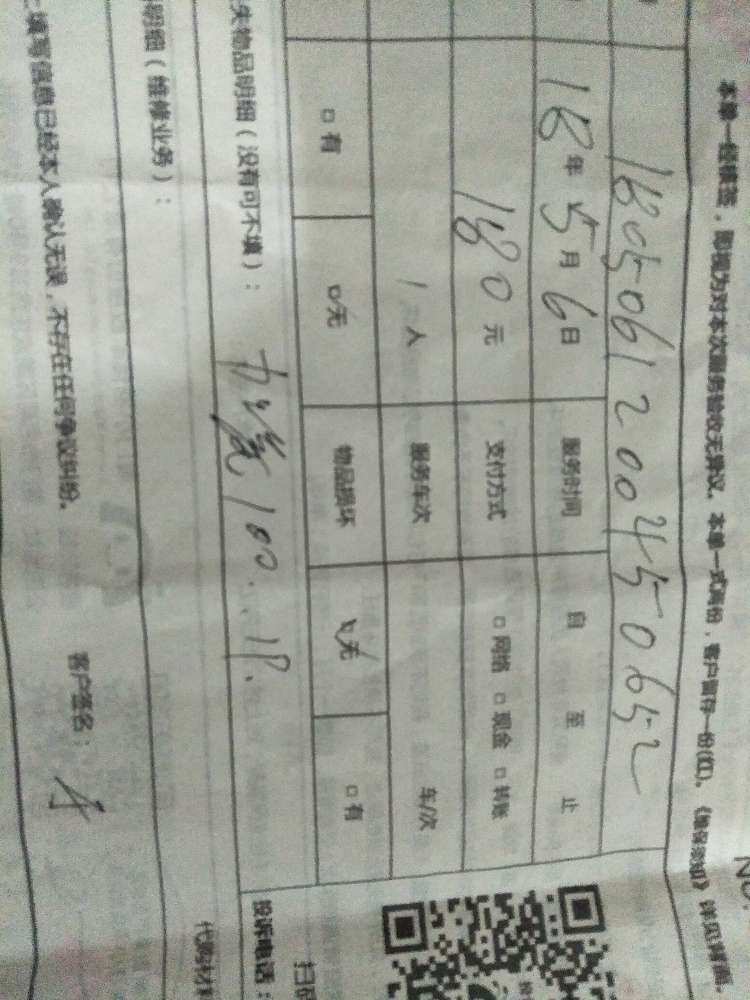 No.
本单一经签签，即视为对本次服务验收无异议。本单一式两份，客户留存一份(红)。
1805061200450652
18年5月6日 服务时间 自 至 止
180元 支付方式 □ 网络 □ 现金 □ 转账
1人 服务车次 车/次
□ 有 □无 物品损坏 □无 □ 有
失物品明细（没有可不填）：
100
明细（维修业务）：
填写信息已经本人确认无误，不存在任何争议纠纷。
客户签名：
扫码
投诉电话：
代购材料